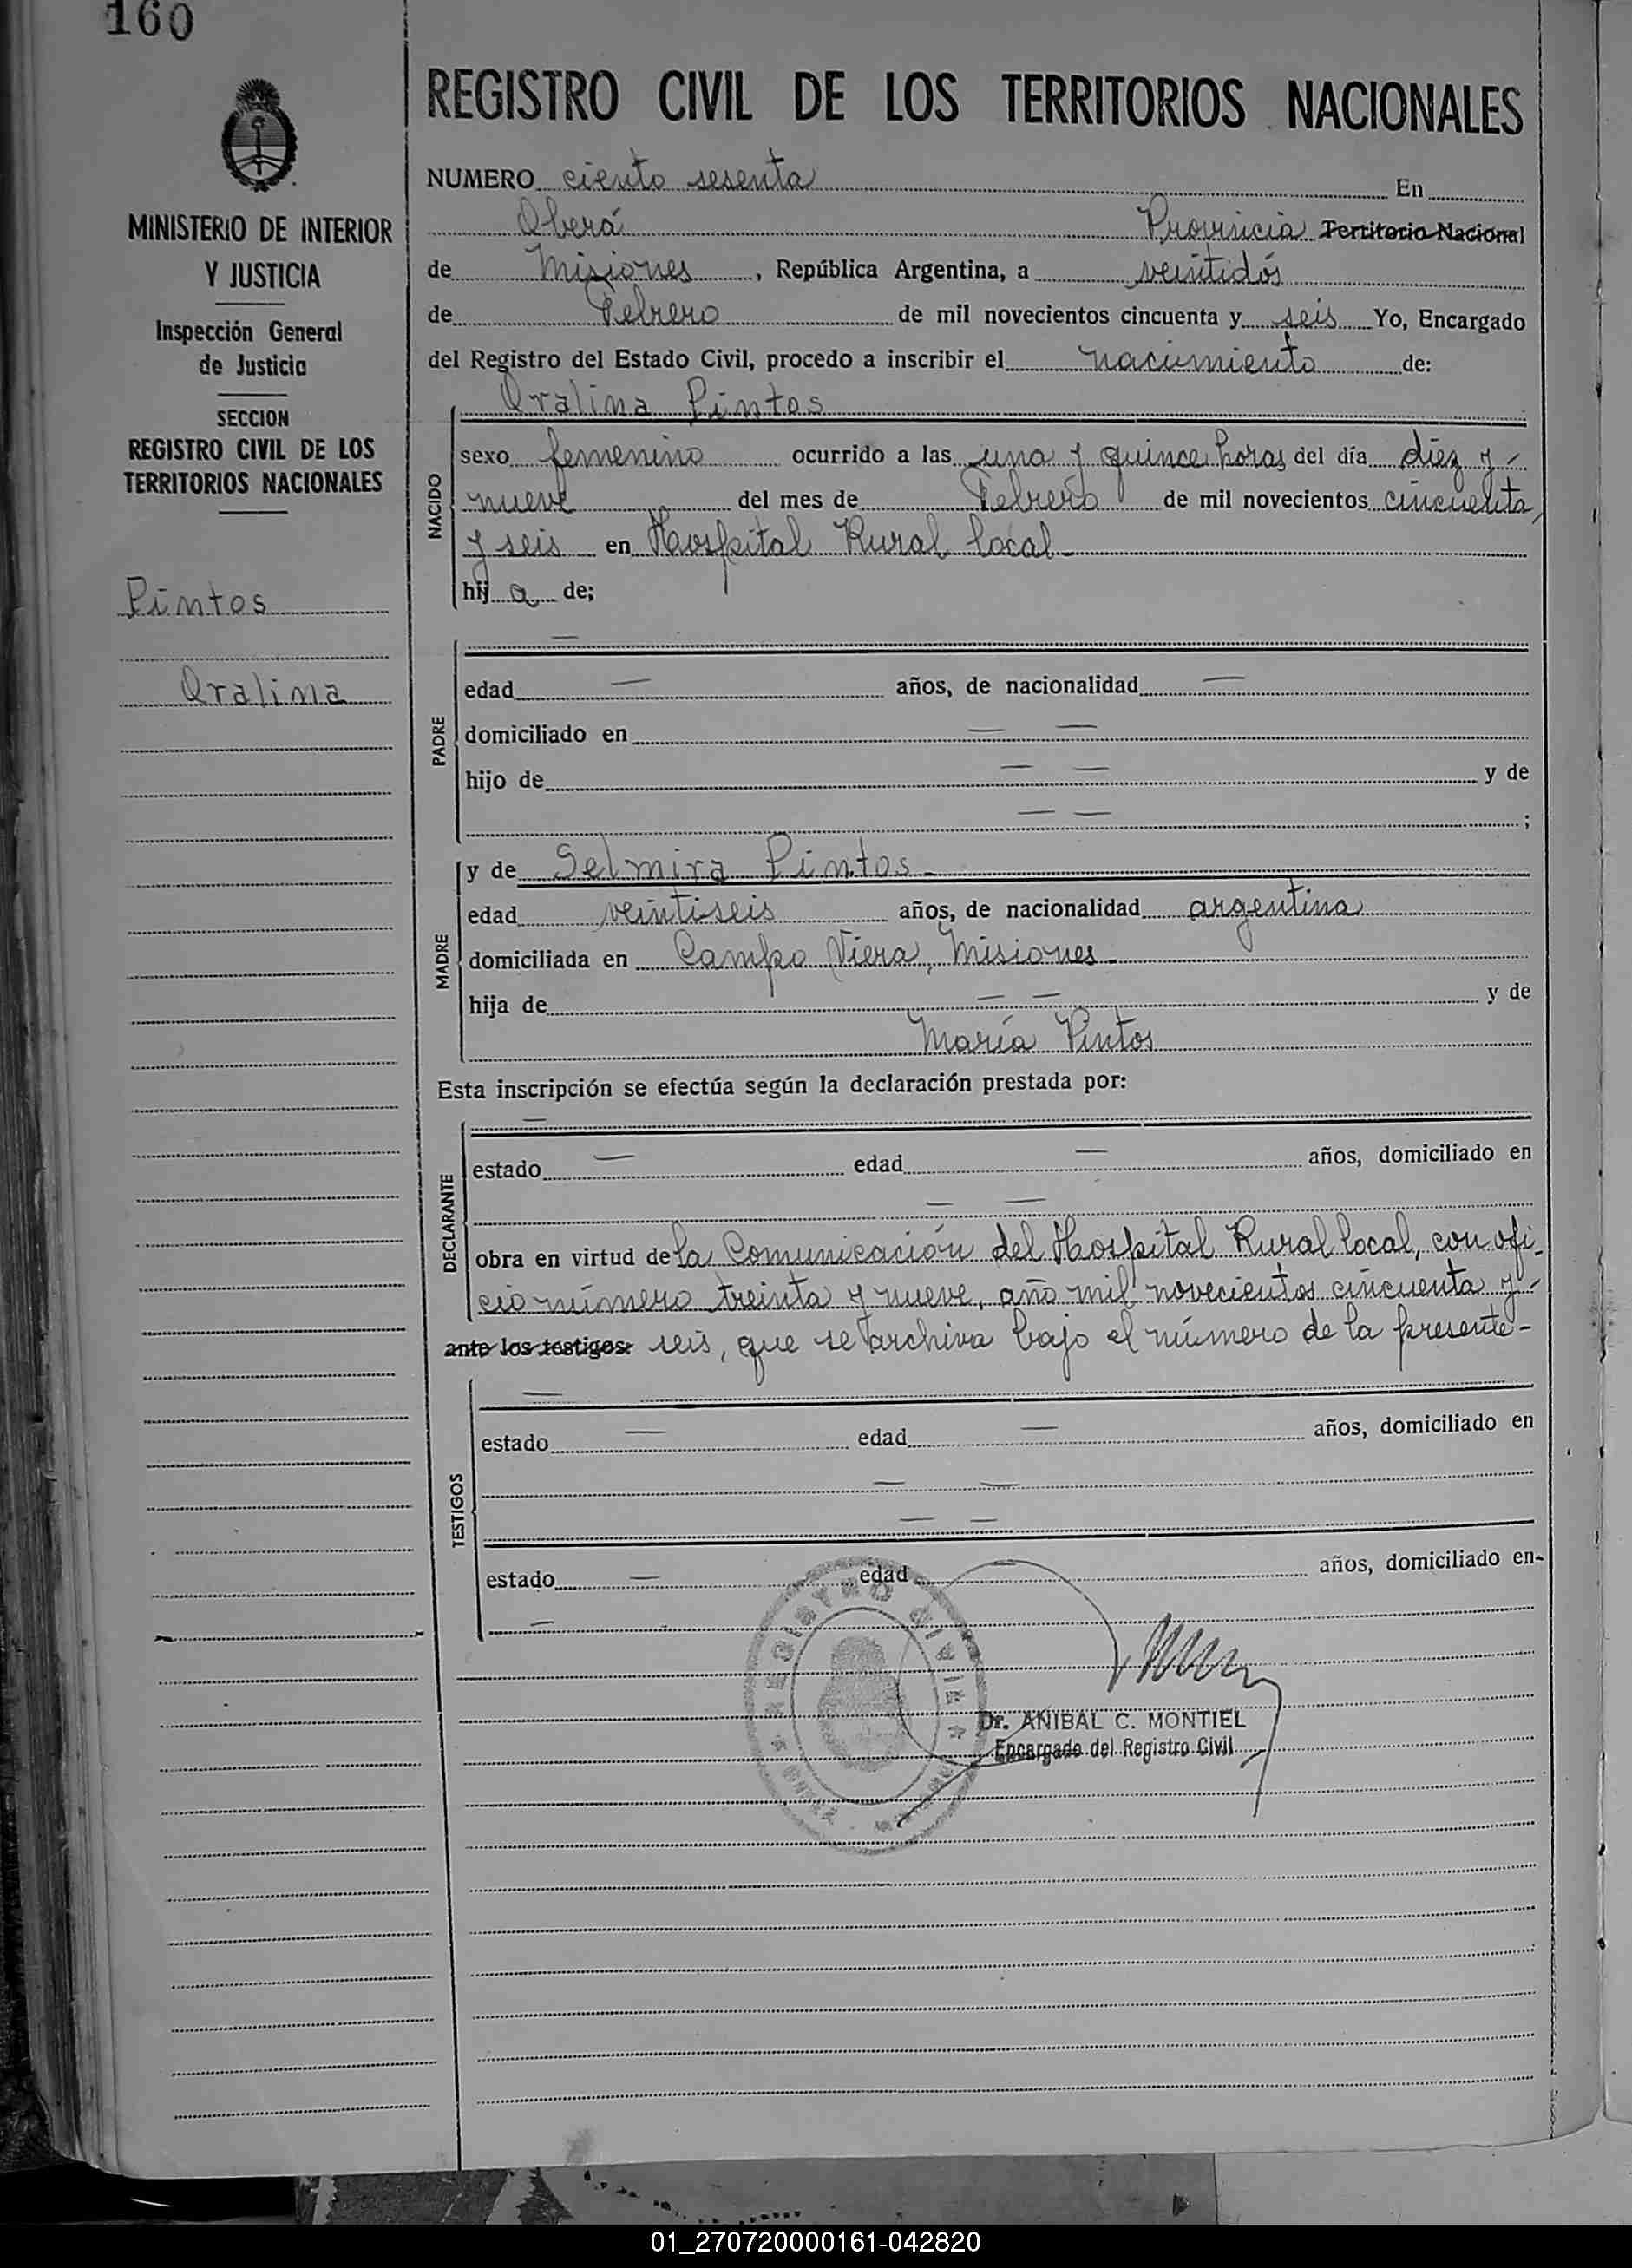 160
REGISTRO CIVIL DE LOS TERRITORIOS NACIONALES
MINISTERIO DE INTERIOR
Y JUSTICIA
Inspección General
de Justicia
SECCION
REGISTRO CIVIL DE LOS
TERRITORIOS NACIONALES
Pintos
Oralina
NUMERO ciento sesenta En
Oberá Provincia Territorio Nacional
de Misiones, República Argentina, a veintidós
de Febrero de mil novecientos cincuenta y seis Yo, Encargado
del Registro del Estado Civil, procedo a inscribir el nacimiento de:
Oralina Pintos
NACIDO
sexo femenino ocurrido a las una y quince horas del día diez y -
nueve del mes de Febrero de mil novecientos cincuenta
y seis en Hospital Rural local -
hij a de;
PADRE
—
edad — años, de nacionalidad —
domiciliado en — —
hijo de — — y de
— — ;
MADRE
y de Selmira Pintos -
edad veintiseis años, de nacionalidad argentina
domiciliada en Campo Viera, Misiones -
hija de — — y de
María Pintos
Esta inscripción se efectúa según la declaración prestada por:
DECLARANTE
—
estado — edad — años, domiciliado en
— —
obra en virtud de la Comunicación del Hospital Rural local, con ofi-
cio número treinta y nueve, año mil novecientos cincuenta y -
ante los testigos: seis, que se archiva bajo el número de la presente -
TESTIGOS
—
estado — edad — años, domiciliado en
— —
— —
estado — edad años, domiciliado en-
—
REGISTRO CIVIL
Dr. ANIBAL C. MONTIEL
Encargado del Registro Civil
01_270720000161-042820